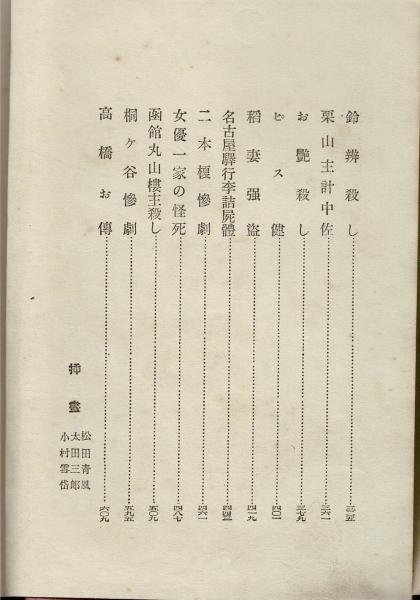 鈴辨殺し……三一五
栗山主計中佐……三六一
お艷殺し……三七九
ピス健……四〇一
稻妻强盜……四一九
名古屋驛行李詰屍體……四四三
二本榎慘劇……四六一
女優一家の怪死……四八七
函館丸山樓主殺し……五〇九
桐ヶ谷慘劇……五九五
高橋お傳……六〇九
挿畫
松田靑風
太田三郞
小村雪岱